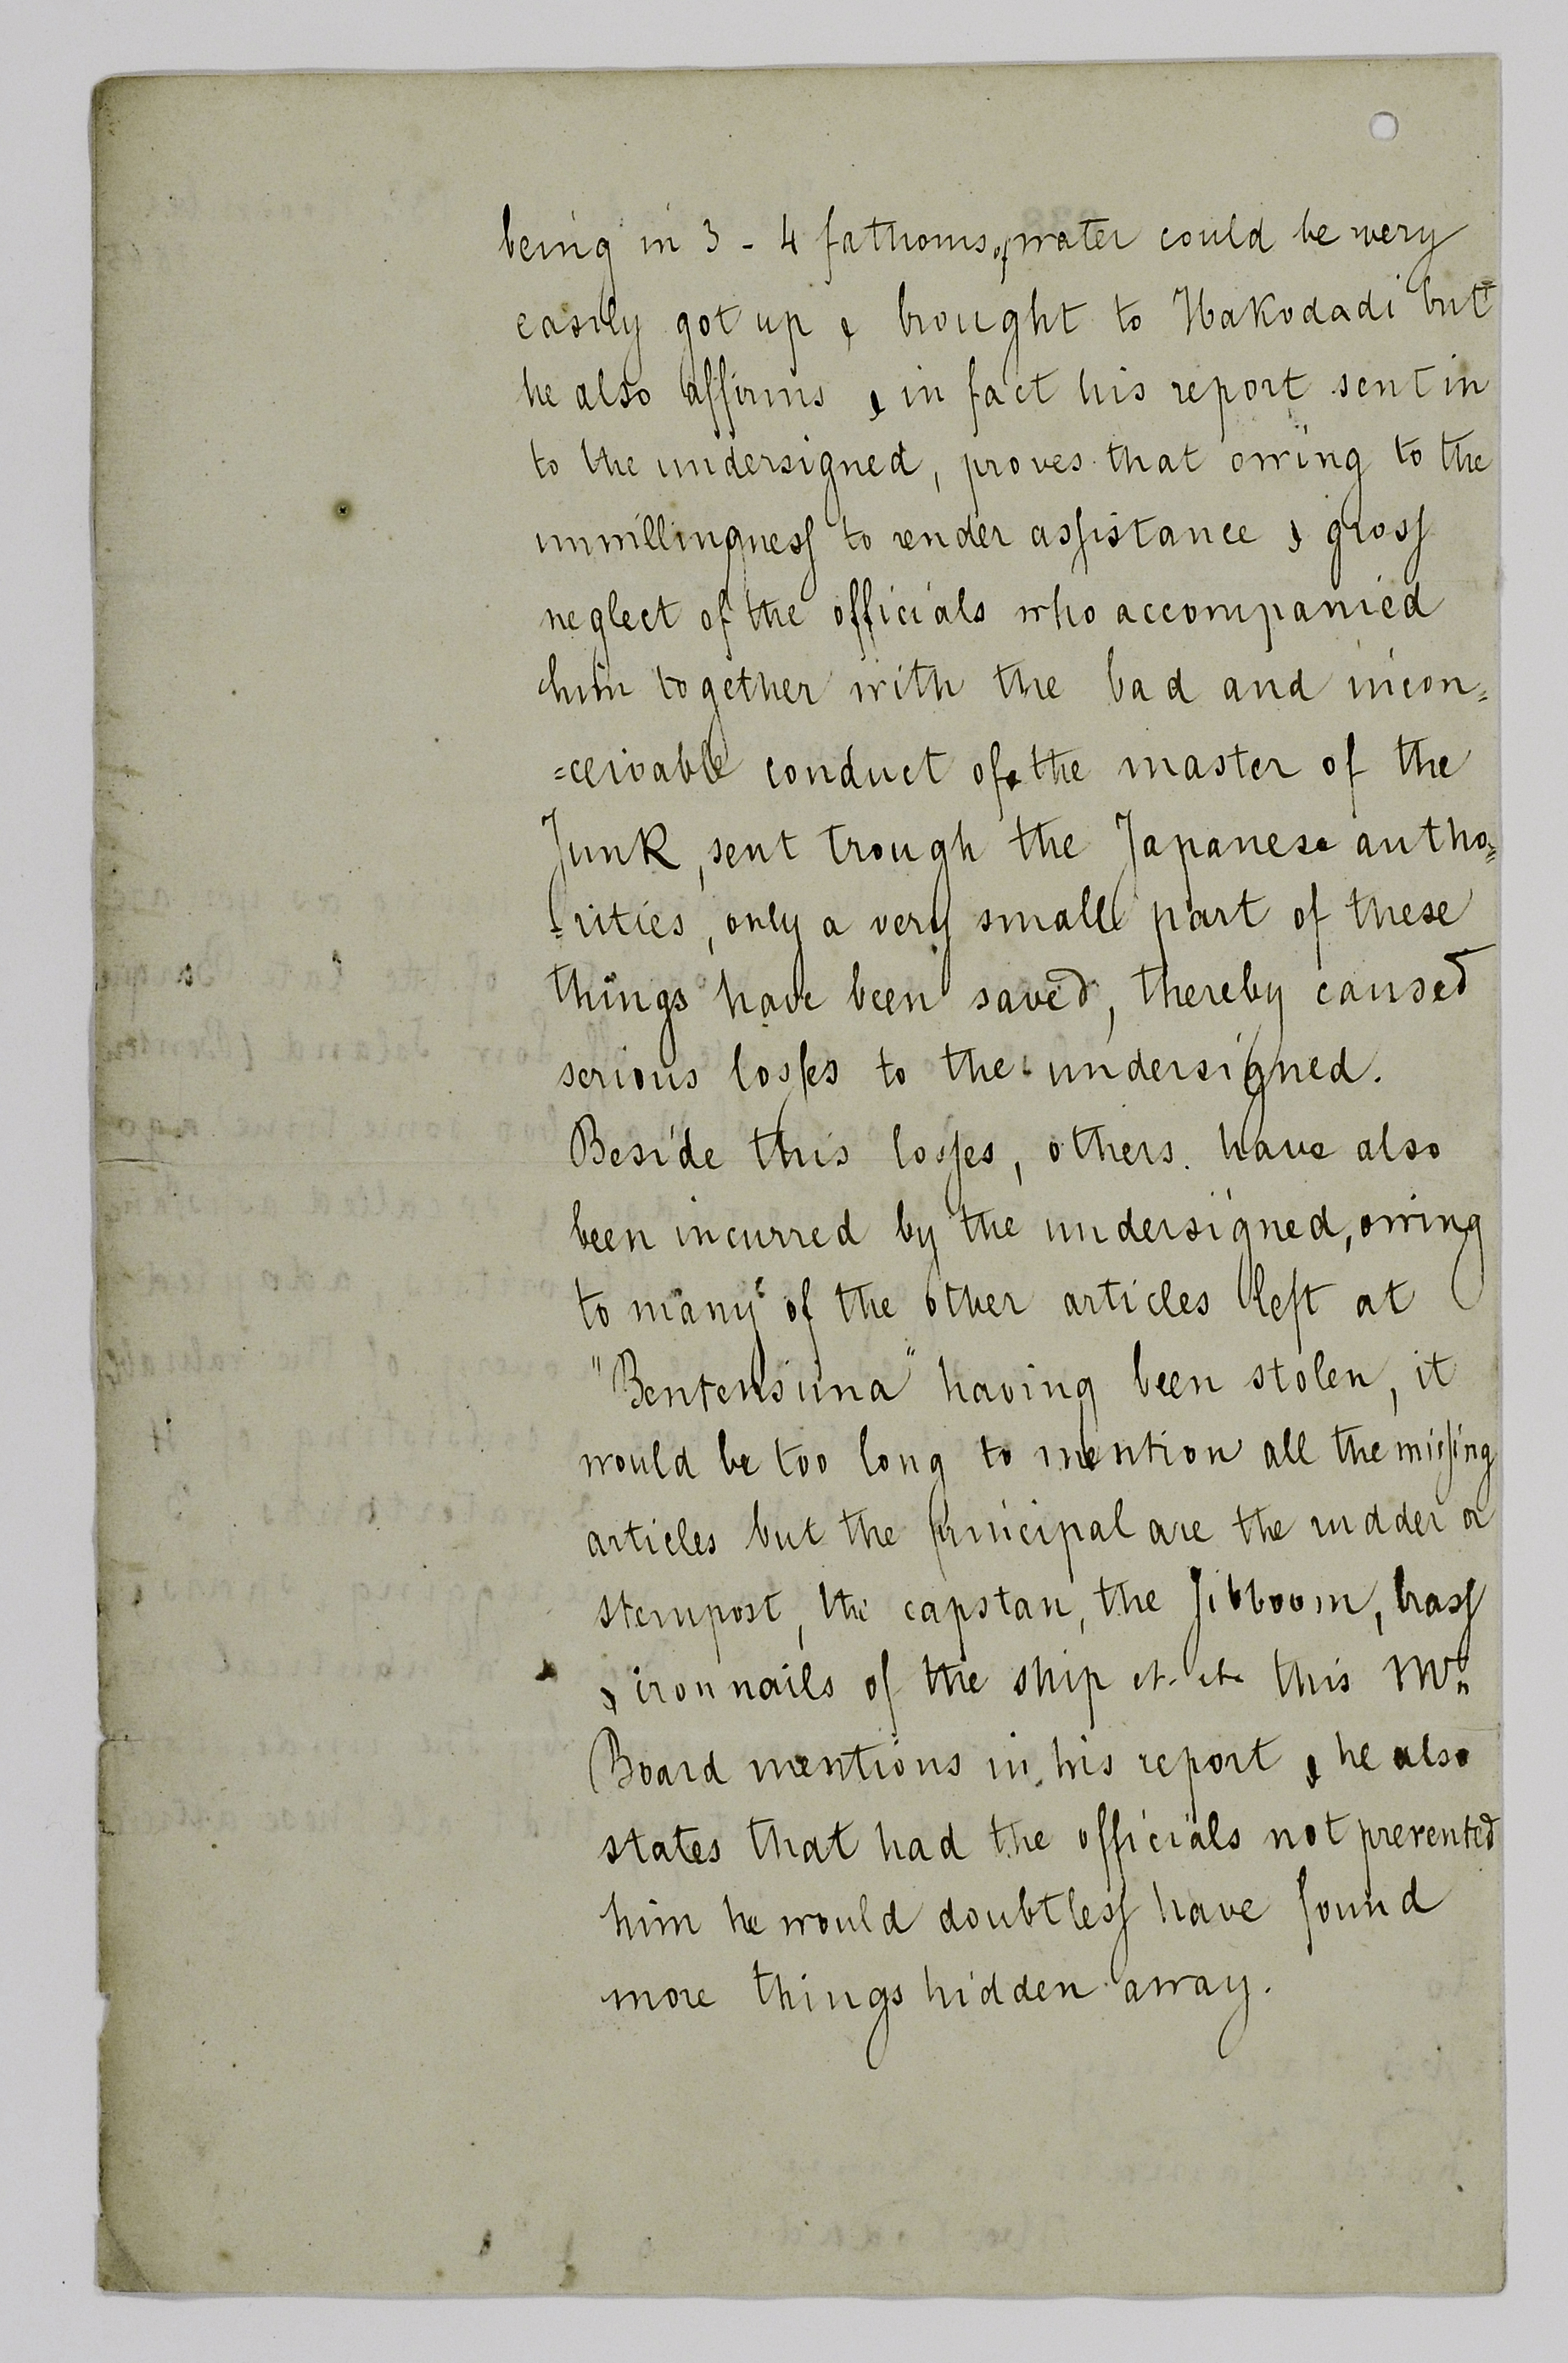 being in 3 - 4 fathoms of water could be wery
easily got up & brought to Hakodadi but
he also affirms & in fact his report sent in
to the undersigned, proves that owing to the
unwillingness to render assistance & gross
neglect of the officials who accompanied
him together with the bad and incon=
=ceivable conduct of the master of the
Junk, sent trough the Japanese autho=
=rities, only a very small part of these
things have been saved, thereby caused
serious losses to the undersigned.
Beside this losses, others have also
been incurred by the undersigned, owing
to many of the other articles left at
"Bentensima" having been stolen, it
would be too long to mention all the missing
articles but the principal are the rudder or
sternpost, the capstan, the Jibboom, brass
& iron nails of the ship etc etc this Mr
Board mentions in his report & he also
states that had the officials not prevented
him he would doubtless have found
more things hidden away.